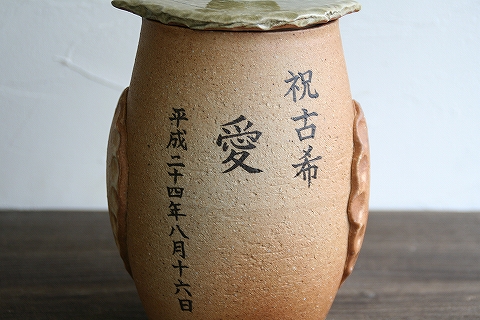 祝古希
愛
平成二十四年八月十六日